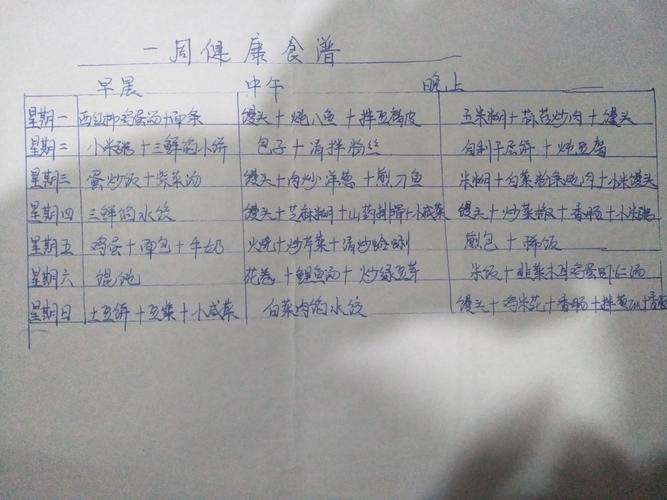 一周健康食谱
早晨 中午 晚上
星期一 西红柿鸡蛋汤+面条 馒头+炖八鱼+拌豆腐皮 玉米糊+蒜苔炒肉+馒头
星期二 小米粥+三鲜馅小饼 包子+清拌粉丝 自制千层饼+炖豆腐
星期三 蛋炒饭+紫菜汤 馒头+肉炒洋葱+煎刀鱼 米糊+白菜粉条炖肉+小米馒头
星期四 三鲜馅水饺 馒头+芝麻糊+山药排骨+小咸菜 馒头+炒菜椒+香肠+小米粥
星期五 鸡蛋+面包+牛奶 火烧+炒芹菜+清炒蛤蜊 煎包+稀饭
星期六 馄饨 花卷+鲤鱼汤+炒绿豆芽 米饭+韭菜木耳鸡蛋虾仁汤
星期日 土豆饼+豆浆+小咸菜 白菜肉馅水饺 馒头+鸡米花+香肠+拌